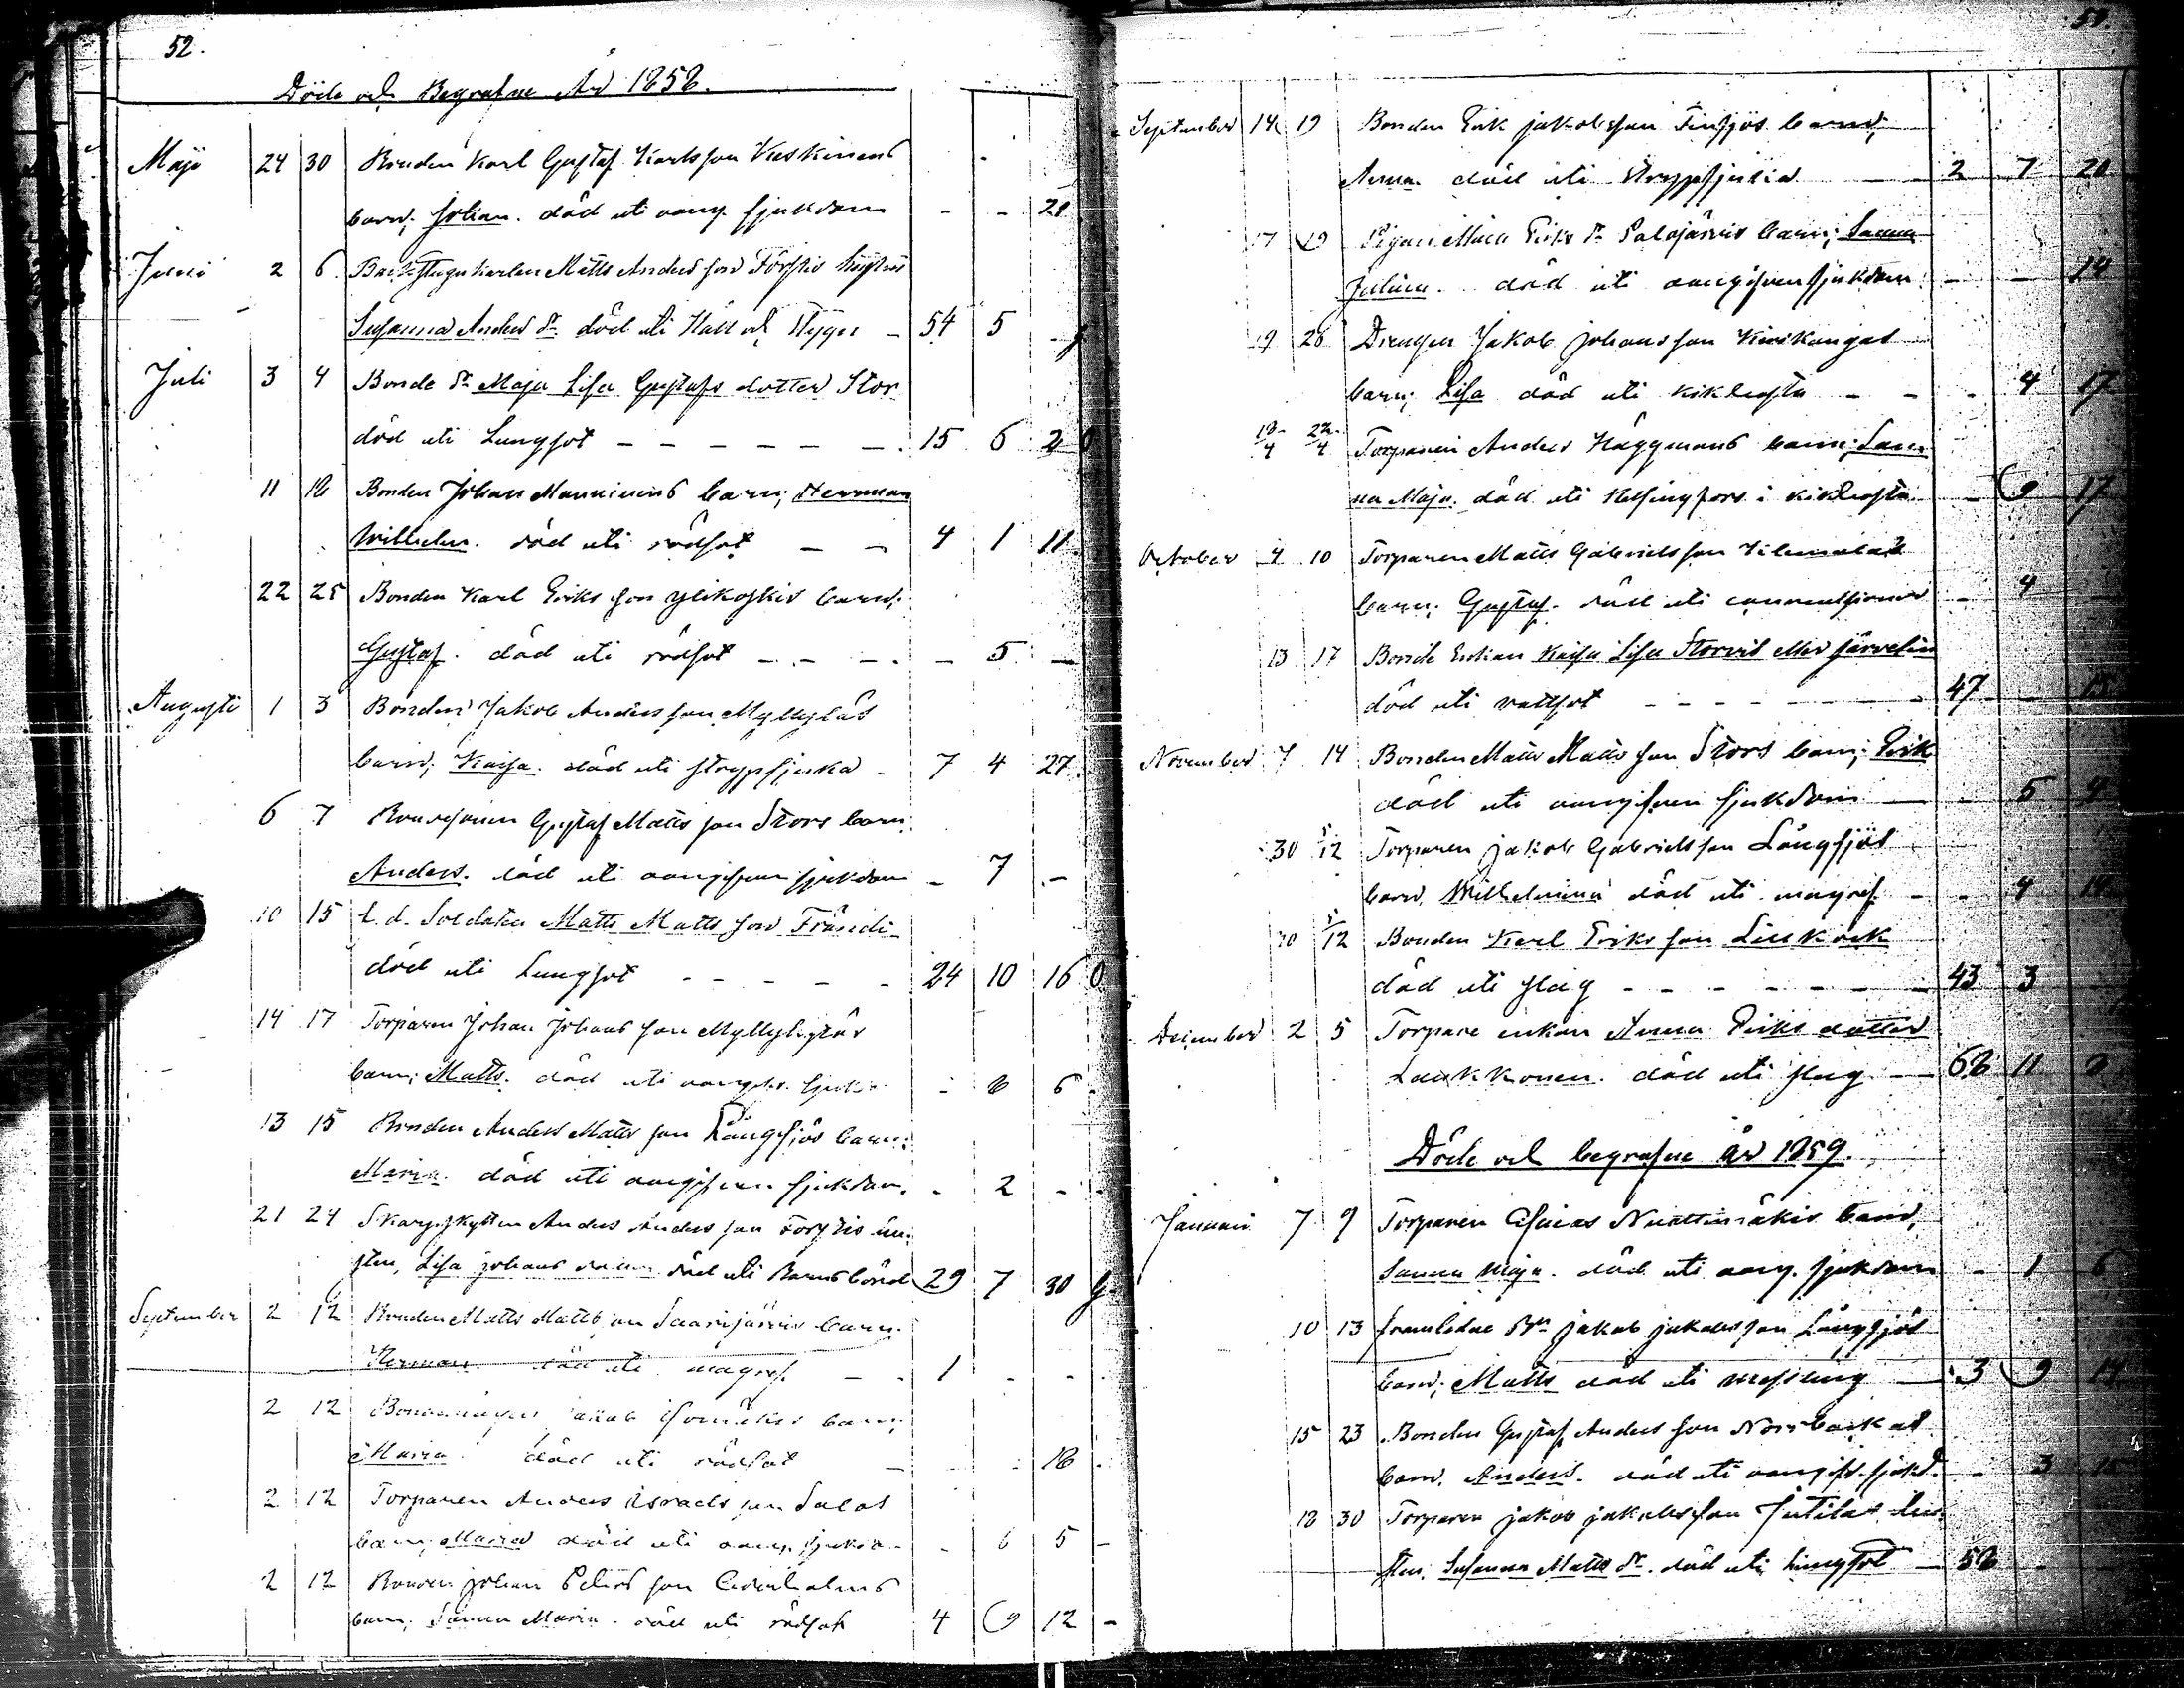 52.
Döde och Begrafne År 1858.
Maji 24 30 Bonden Karl Gustaf Karlsson Keskinens
barn; Johan. död uti oang. sjukdom - - 21
Juni 2 6. Backstugukarlen Matts Andersson Förstis hustru
Susanna Anders dr död uti Håll och Stygn - 54 5
Juli 3 4 Bonde dr Maja Lisa Gustafs dotter Stor
död uti Lungsot - - - - - - 15 6 20
11 18 Bonden Johan Manninens barn; Herrman
Wilhelm. död uti rödsot - - 4 1 11
22 25 Bonden Karl Eriksson Ylikoskis barn;
Gustaf. död uti rödsot - - - - 5 -
Augusti 1 3 Bonden Jakob Andersson Myllyläs
barn; Kaisa. död uti strypsjuka - 7 4 27.
6 7 Gustaf Mattsson Stors barn
Anders. död uti oangifven sjukdom - 7 -
10 15 L.d. Soldaten Matts Mattsson Frändi
död uti Lungsot - - - - - 24 10 16 0
14 17 Torparen Johan Johansson
barn; Matts. död uti oangifv. sjukd. - 8 6
13 15 Bonden Anders Mattsson Långsjös barn;
Maria. död uti oangifven sjukdom. - 2 -
21 24 Skarpskytten Anders Andersson Förstis hu-
stru, Lisa Johans död uti Barnsbörd 29 7 30 G
September 2 12 Bonden Matts Mattsson Saarijärvis barn.
Herman. död uti magref. - - 1 - -
2 12 Jakob barn;
Maria. död uti rödsot - - 18
2 12 Torparen Anders Israelsson Salos
barn; Maria död uti oang. sjukd. - 6 5 -
2 12 Bonden Johan Petersson Cederholms
barn; Sanna Maria. död uti rödsot 4 9 12 -
September 14 19 Bonden Erik Jakobsson Finsjös barn;
Anna. död uti strypsjuka - 2 7 20
17 19 Pigan Maria Eriks dr Palojärvis barn; Sanna
Julina. död uti oangifven sjukdom - - 14
19 26 Drengen Jakob Johansson Kivikangas
barn; Lisa död uti kikhosta - - - 4 17
18/4 22/4 Torparen Anders Häggmans barn; San-
na Maja. död uti Helsingfors i kikhosta - 9 17
October 4 10 Torparen Matts Gabrielsson
barn; Gustaf. död uti - 4
13 17 Bonde Enkan Kaisa Lisa Storvik eller Järvelin
död uti vattsot - - - - - - 47 - 15
November 7 14 Bonden Matts Mattsson Stors barn; Erik
död uti oangifven sjukdom - - 5 9
30 5/12 Torparen Jakob Gabrielsson Långsjös
barn Wilhelmina död uti magref. - - 4 14
30 5/12 Bonden Karl Eriksson
död uti slag - - - - - - 43 3
December 2 5 Torpare enkan Anna Eriks dotter
Laukkonen. död uti slag - 68 11 9
Döde och begrafne år 1859.
Januari 7 9 Torparen Esaias Nuottimäkis barn,
Sanna Maja. död uti oang. sjukdom - 1 6
10 13 framlidne Jakob Jakobsson Långsjös
barn; Matts död uti messling - 3 9 14
15 23 Bonden Gustaf Andersson Norrbackas
barn. Anders. död uti oangifv. sjukd. - 3 15
18 30 Torparen Jakob Jakobsson Jutilas hu-
stru, Susanna Matts dr. död uti lungsot - 58